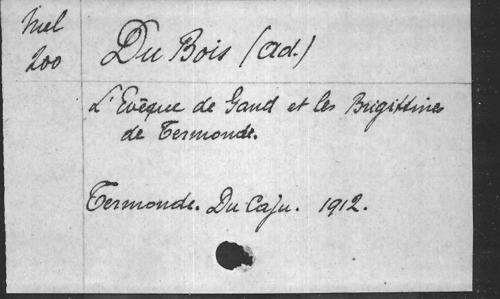 Mel
200
Du Bois (Ad.)
L'Evêque de Gand et les Brigittines
de Termonde.
Termonde. Du Caju. 1912.